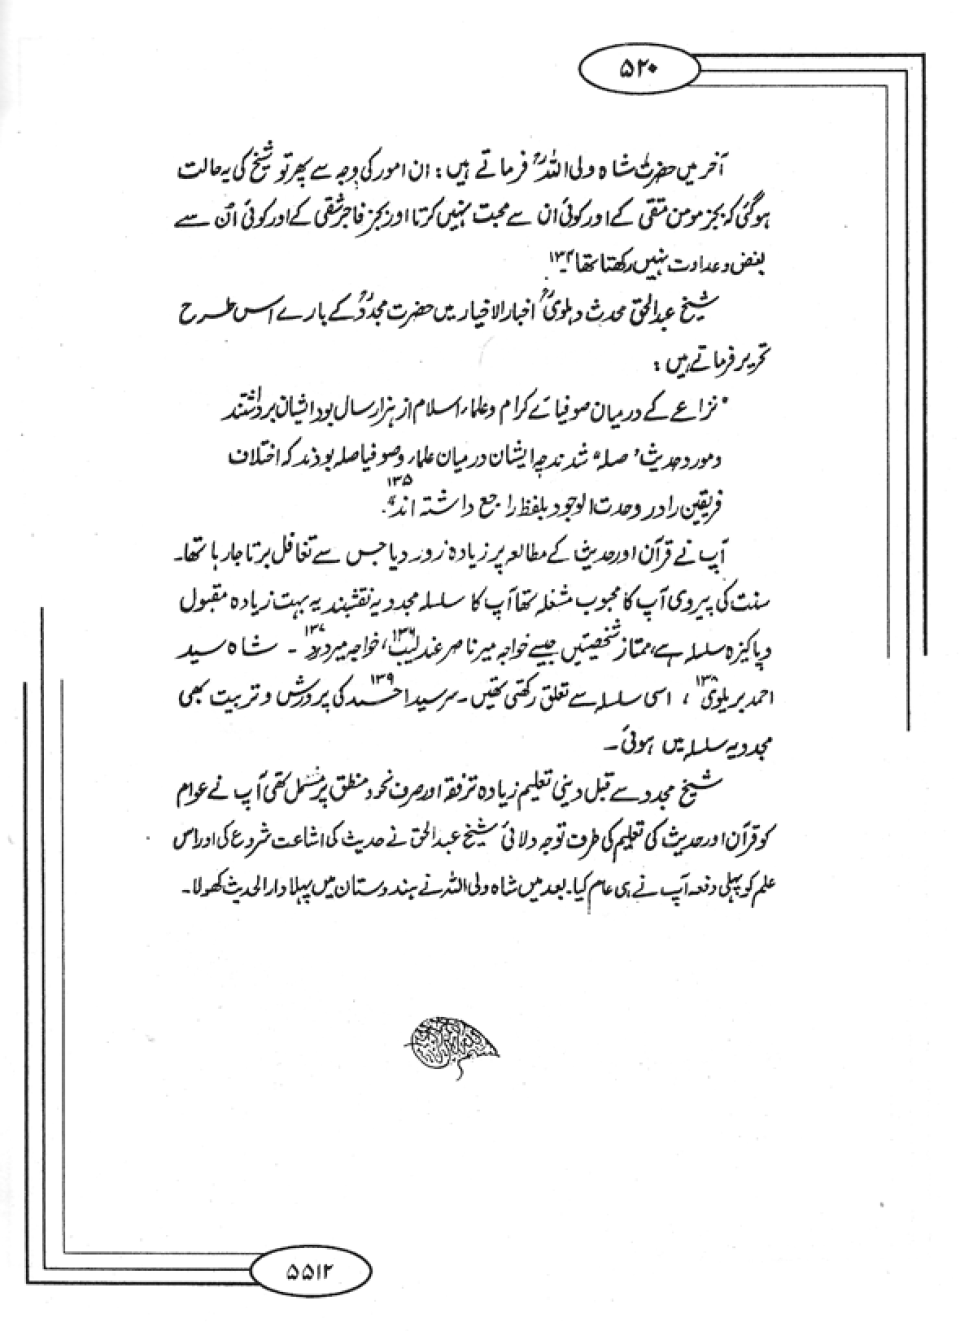 ۵۲۰
آخر میں حضرت شاہ ولی اللہؒ فرماتے ہیں: ان امور کی وجہ سے پھر تو شیخ کی یہ حالت
ہو گئی کہ بجز مومن متقی کے اور کوئی ان سے محبت نہیں کرتا اور بجز فاجر شقی کے اور کوئی اُن سے
بغض و عداوت نہیں رکھتا تھا ۱۳۴؎
شیخ عبدالحق محدث دہلویؒ اخبار الاخیار میں حضرت مجددؒ کے بارے اس طرح
تحریر فرماتے ہیں:
"نزاعے کے درمیان صوفیائے کرام و علماء اسلام از ہزار سال بود ایشان برداشتند
و مورد حدیث "صلہ" شدند چہ ایشان درمیان علماء و صوفیا صلہ بودند کہ اختلاف
فریقین را در وحدت الوجود بلفظ راجع داشتہ اند"۔ ۱۳۵
آپ نے قرآن اور حدیث کے مطالعہ پر زیادہ زور دیا جس سے تغافل برتا جا رہا تھا۔
سنت کی پیروی آپ کا محبوب مشغلہ تھا آپ کا سلسلہ مجددیہ نقشبندیہ بہت زیادہ مقبول
و پاکیزہ سلسلہ ہے، ممتاز شخصیتیں جیسے خواجہ میر ناصر عندلیب ۱۳۶، خواجہ میر درد ۱۳۷۔ شاہ سید
احمد بریلوی ۱۳۸، اسی سلسلہ سے تعلق رکھتی تھیں۔ سر سید احمد ۱۳۹ کی پرورش و تربیت بھی
مجددیہ سلسلہ میں ہوئی۔
شیخ مجدد سے قبل دینی تعلیم زیادہ تر فقہ اور صرف نحو و منطق پر مشتمل تھی آپ نے عوام
کو قرآن اور حدیث کی تعلیم کی طرف توجہ دلائی شیخ عبدالحق نے حدیث کی اشاعت شروع کی اور اس
علم کو پہلی دفعہ آپ نے ہی عام کیا۔ بعد میں شاہ ولی اللہ نے ہندوستان میں پہلا دارالحدیث کھولا۔
۵۵۱۲